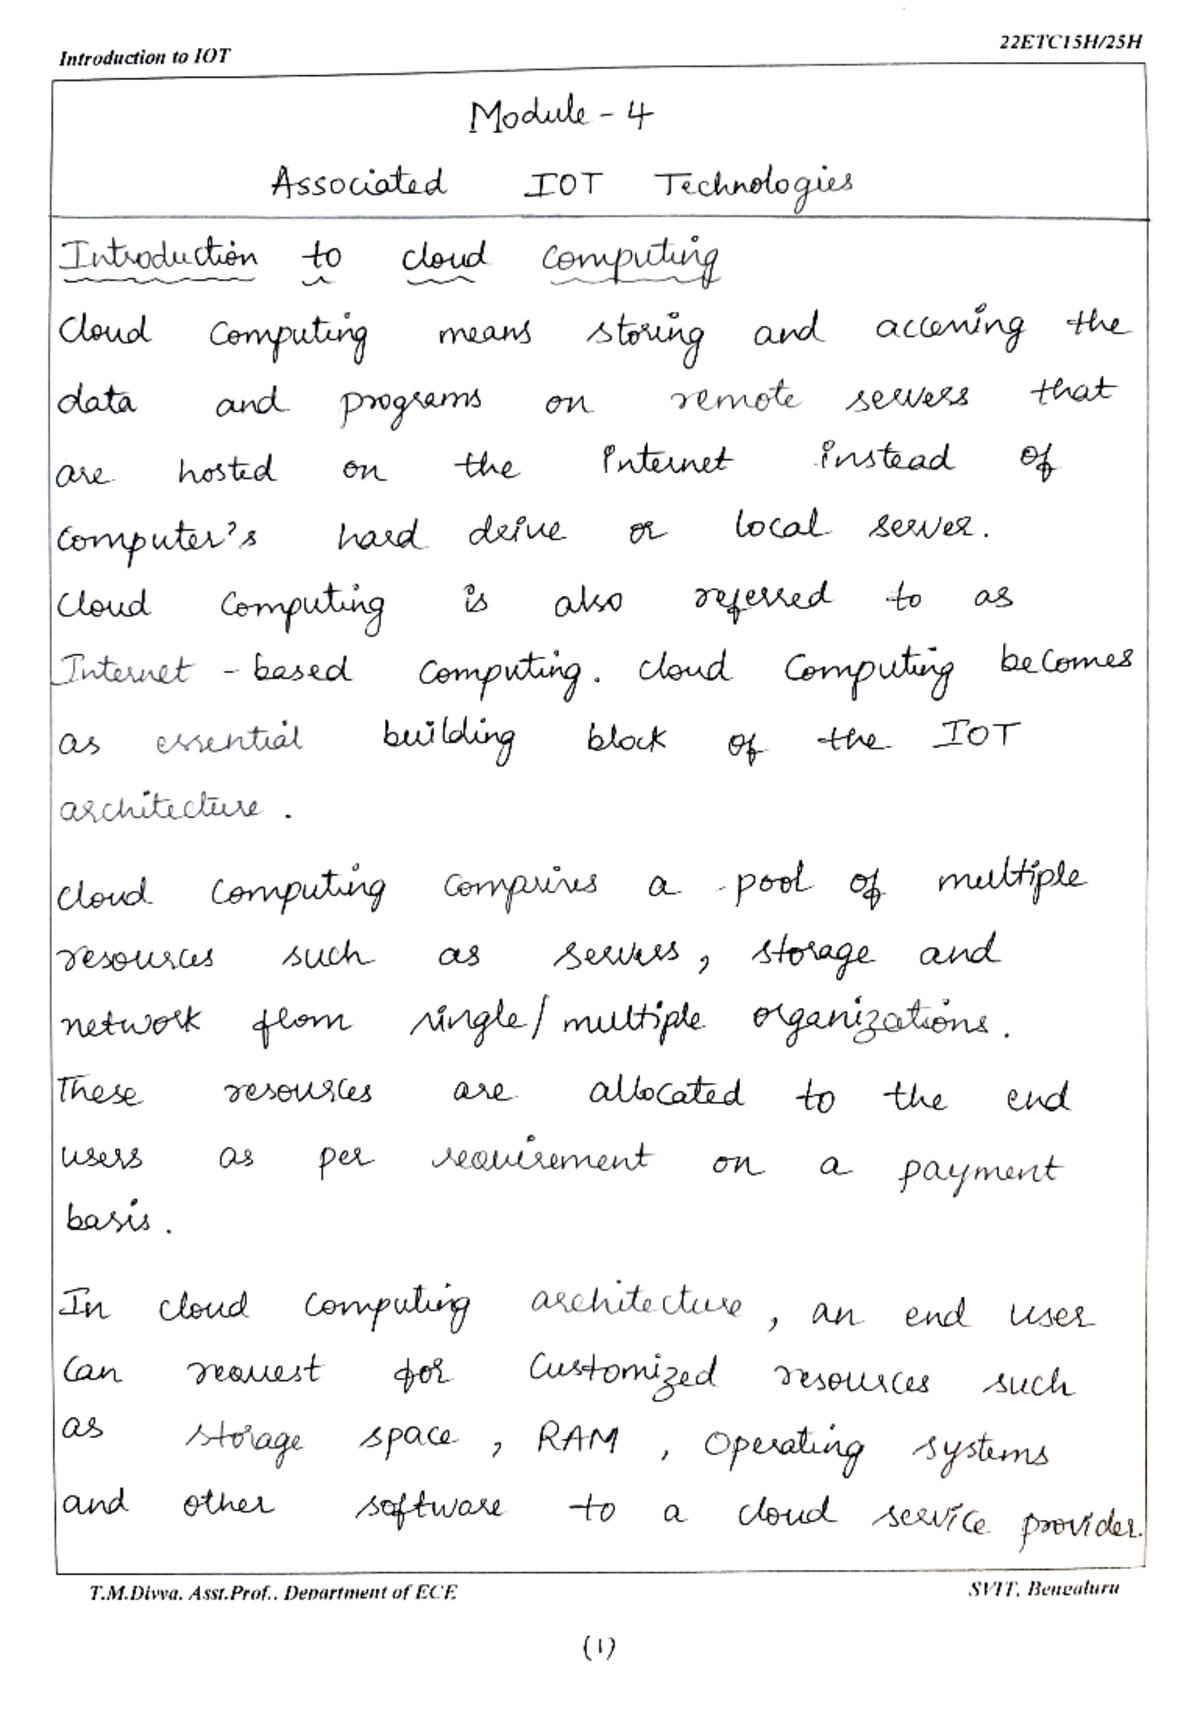 Introduction to IOT
22ETC15H/25H
Module - 4
Associated IOT Technologies
Introduction to cloud computing
Cloud Computing means storing and accessing the
data and programs on remote servers that
are hosted on the internet instead of
computer's hard drive or local server.
Cloud Computing is also referred to as
Internet - based computing. Cloud Computing becomes
as essential building block of the IOT
architecture.
Cloud Computing comprises a pool of multiple
resources such as servers, storage and
network from single/multiple organizations.
These resources are allocated to the end
users as per requirement on a payment
basis.
In cloud computing architecture, an end user
can request for customized resources such
as storage space, RAM, Operating systems
and other software to a cloud service provider.
T.M.Divya, Asst.Prof., Department of ECE
SVIT, Bengaluru
(1)